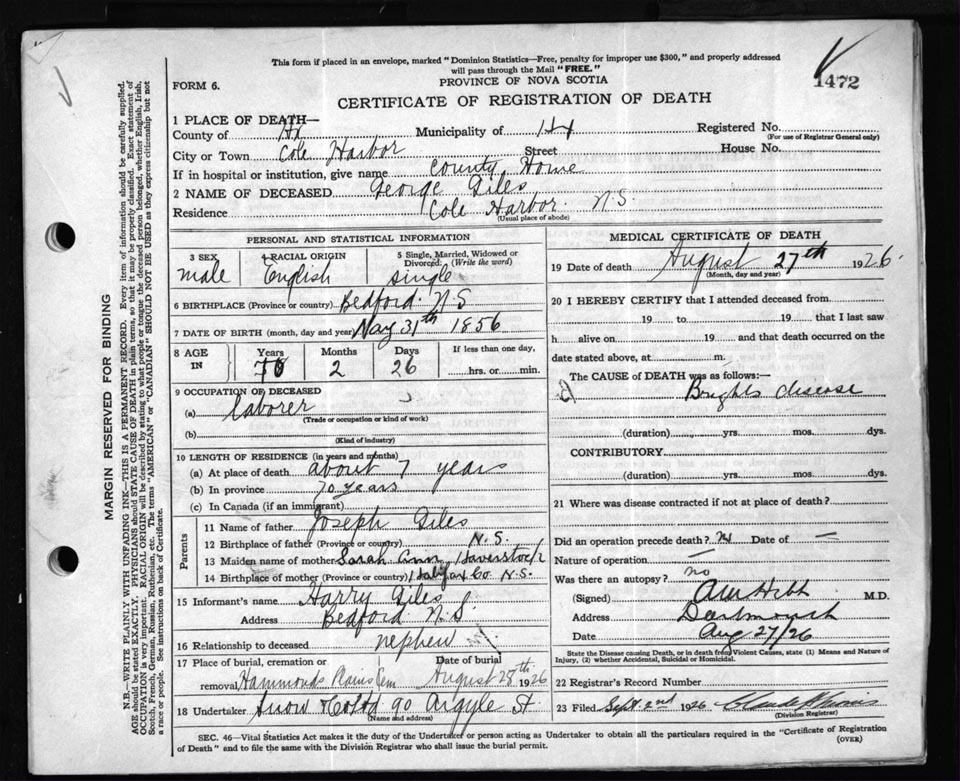 This form if placed in an envelope, marked "Dominion Statistics—Free, penalty for improper use $300," and properly addressed
will pass through the Mail "FREE."
1472
FORM 6.
PROVINCE OF NOVA SCOTIA
CERTIFICATE OF REGISTRATION OF DEATH
1 PLACE OF DEATH—
County of Hx Municipality of Hx Registered No.
(For use of Registrar General only)
City or Town Cole Harbor Street House No.
If in hospital or institution, give name County Home
2 NAME OF DECEASED George Giles
Residence Cole Harbor N.S.
(Usual place of abode)
PERSONAL AND STATISTICAL INFORMATION
3 SEX 4 RACIAL ORIGIN 5 Single, Married, Widowed or Divorced: (Write the word)
male English single
6 BIRTHPLACE (Province or country) Bedford N S
7 DATE OF BIRTH (month, day and year) May 31th 1856
8 AGE IN Years Months Days If less than one day,
70 2 26 hrs. or min.
9 OCCUPATION OF DECEASED
(a) Laborer
(Trade or occupation or kind of work)
(b)
(Kind of industry)
10 LENGTH OF RESIDENCE (in years and months)
(a) At place of death about 7 years
(b) In province 70 years
(c) In Canada (if an immigrant)
Parents
11 Name of father Joseph Giles
12 Birthplace of father (Province or country) N.S.
13 Maiden name of mother Sarah Ann Haverstock
14 Birthplace of mother (Province or country) Halifax Co. N.S.
15 Informant's name Harry Giles
Address Bedford N.S.
16 Relationship to deceased nephew
17 Place of burial, cremation or removal Hammonds Plains Cem Date of burial August 28th 1926
18 Undertaker Snow & Co Ltd 90 Argyle St
(Name and address)
MEDICAL CERTIFICATE OF DEATH
19 Date of death August 27th 1926.
(Month, day and year)
20 I HEREBY CERTIFY that I attended deceased from
19 to 19 that I last saw
h alive on 19 and that death occurred on the
date stated above, at m.
The CAUSE OF DEATH was as follows:—
Brights disease
(duration) yrs. mos. dys.
CONTRIBUTORY
(duration) yrs. mos. dys.
21 Where was disease contracted if not at place of death?
Did an operation precede death? Date of —
Nature of operation —
Was there an autopsy? no
(Signed) M.D.
Address Dartmouth
Date Aug 27/26
State the Disease causing Death, or in death from Violent Causes, state (1) Means and Nature of
Injury, (2) whether Accidental, Suicidal or Homicidal.
22 Registrar's Record Number
23 Filed Sept 2nd 1926
(Division Registrar)
SEC. 46—Vital Statistics Act makes it the duty of the Undertaker or person acting as Undertaker to obtain all the particulars required in the "Certificate of Registration
of Death" and to file the same with the Division Registrar who shall issue the burial permit.
(OVER)
MARGIN RESERVED FOR BINDING
N.B.—WRITE PLAINLY WITH UNFADING INK—THIS IS A PERMANENT RECORD. Every item of information should be carefully supplied.
AGE should be stated EXACTLY. PHYSICIANS should STATE CAUSE OF DEATH in plain terms, so that it may be properly classified. Exact statement of
OCCUPATION is very important. RACIAL ORIGIN will be described by stating to what people or tongue the deceased person belonged, whether English, Irish,
Scotch, French, German, Russian, Ruthenian, etc. The terms "AMERICAN" or "CANADIAN" SHOULD NOT BE USED as they express citizenship but not
a race or people. See instructions on back of Certificate.